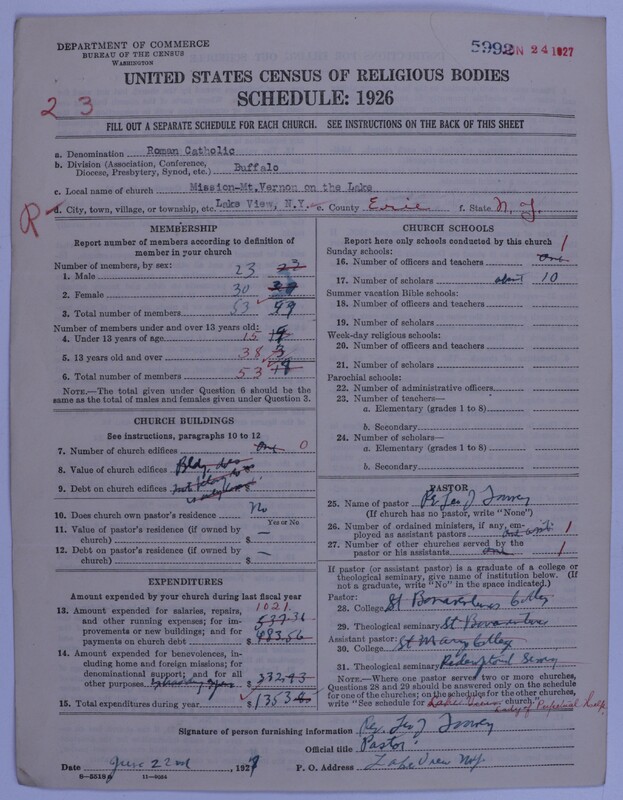 DEPARTMENT OF COMMERCE
BUREAU OF THE CENSUS
WASHINGTON
5992 JUN 24 1927
UNITED STATES CENSUS OF RELIGIOUS BODIES
SCHEDULE: 1926
2 3
FILL OUT A SEPARATE SCHEDULE FOR EACH CHURCH. SEE INSTRUCTIONS ON THE BACK OF THIS SHEET
a. Denomination Roman Catholic
b. Division (Association, Conference, Diocese, Presbytery, Synod, etc.) Buffalo
c. Local name of church Mission-Mt.Vernon on the Lake
R
d. City, town, village, or township, etc. Lake View, N.Y. e. County Erie f. State N. Y.
MEMBERSHIP
Report number of members according to definition of
member in your church
Number of members, by sex:
1. Male 23 23
2. Female 30
3. Total number of members 53
Number of members under and over 13 years old:
4. Under 13 years of age 15
5. 13 years old and over 38
6. Total number of members 53
NOTE.—The total given under Question 6 should be
same as the total of males and females given under Question 3.
CHURCH BUILDINGS
See instructions, paragraphs 10 to 12
7. Number of church edifices one 0
8. Value of church edifices Bldg.
9. Debt on church edifices
10. Does church own pastor's residence No
Yes or No
11. Value of pastor's residence (if owned by
church) $ —
12. Debt on pastor's residence (if owned by
church) $ —
EXPENDITURES
Amount expended by your church during last fiscal year
13. Amount expended for salaries, repairs,
and other running expenses; for im-
provements or new buildings; and for
payments on church debt $
1021.
537.36
483.56
14. Amount expended for benevolences, in-
cluding home and foreign missions; for
denominational support; and for all
other purposes. $ 332.43
15. Total expenditures during year $ 1353
CHURCH SCHOOLS
Report here only schools conducted by this church
Sunday schools:
16. Number of officers and teachers one 1
17. Number of scholars about 10
Summer vacation Bible schools:
18. Number of officers and teachers
19. Number of scholars
Week-day religious schools:
20. Number of officers and teachers
21. Number of scholars
Parochial schools:
22. Number of administrative officers
23. Number of teachers—
a. Elementary (grades 1 to 8)
b. Secondary
24. Number of scholars—
a. Elementary (grades 1 to 8)
b. Secondary
PASTOR
25. Name of pastor Rev Leo J Toomey
(If church has no pastor, write "None")
26. Number of ordained ministers, if any, em-
ployed as assistant pastors 1
27. Number of other churches served by the
pastor or his assistants one 1
If pastor (or assistant pastor) is a graduate of a college or
theological seminary, give name of institution below. (If
not a graduate, write "No" in the space indicated.)
Pastor:
28. College St Bonaventures College
29. Theological seminary St Bonaventures
Assistant pastor:
30. College St Mary College
31. Theological seminary
NOTE.—Where one pastor serves two or more churches,
Questions 28 and 29 should be answered only on the schedule
for one of the churches; on the schedules for the other churches,
write "See schedule for church." Lake View Lady of Perpetual Help
Signature of person furnishing information Rev. Leo J Toomey
Official title Pastor
Date June 22nd, 1927 P. O. Address Lake View N.Y.
8—5518a 11—9064